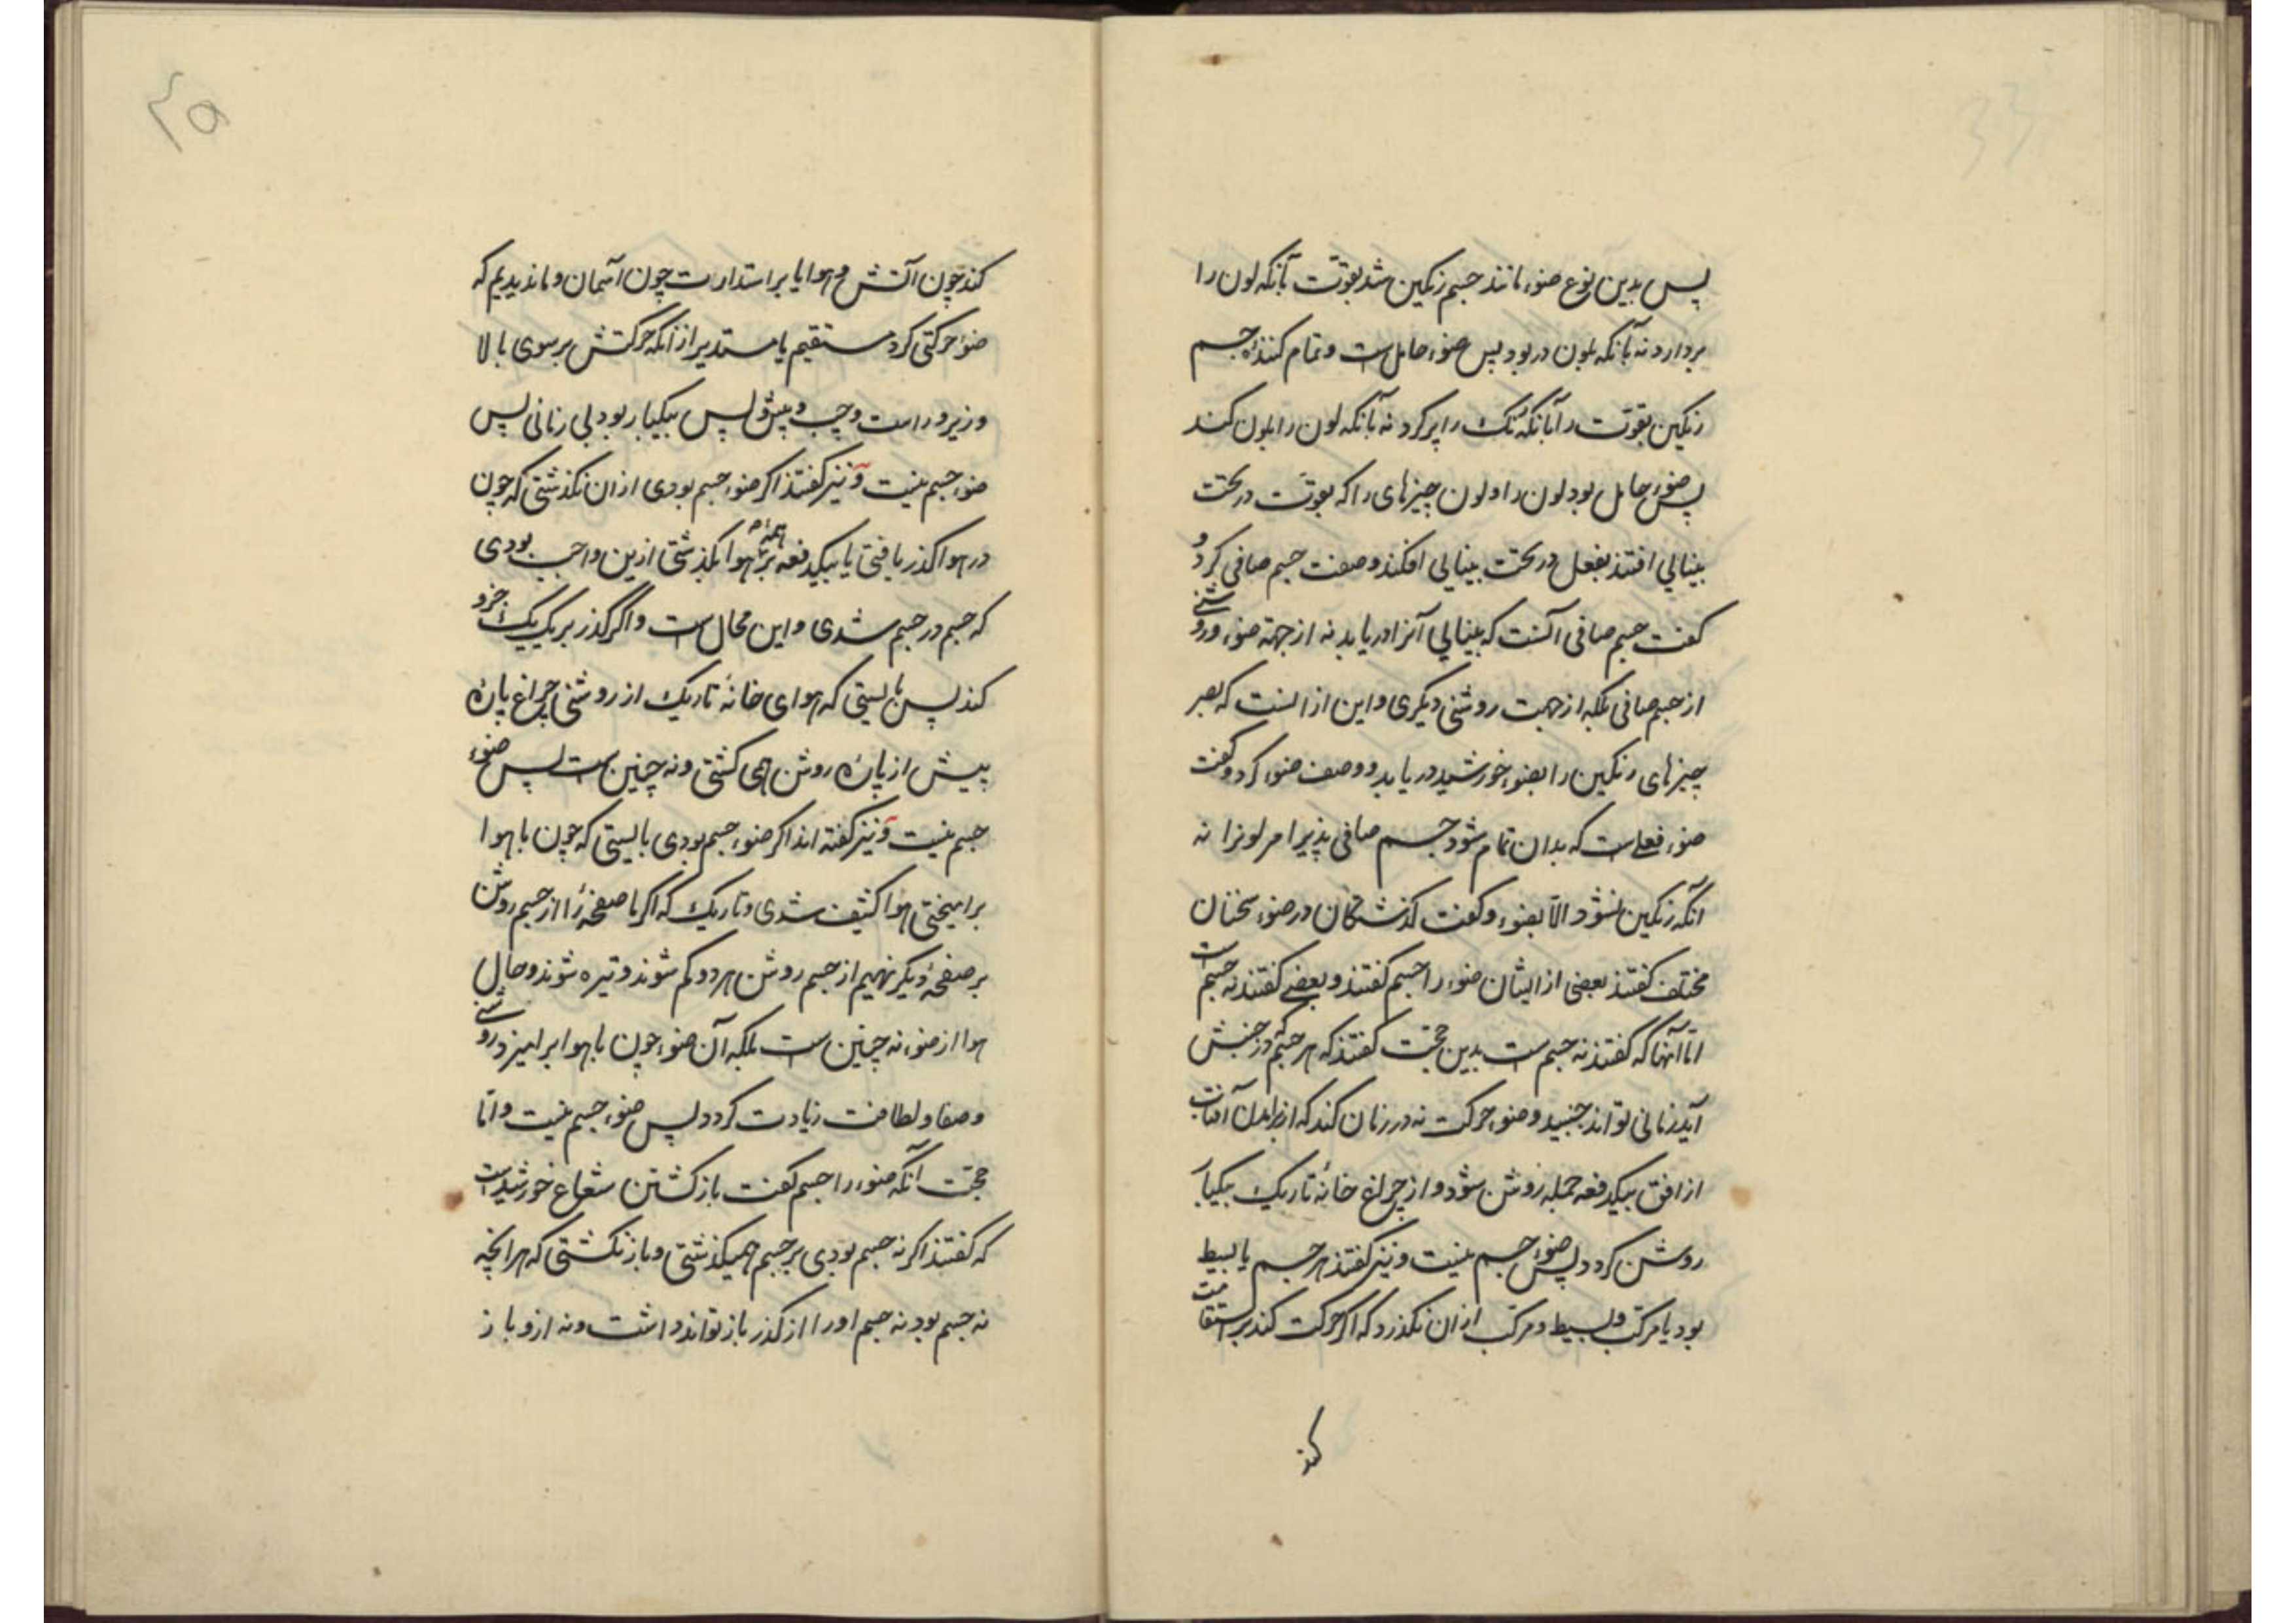 پس بدین نوع ضوء مانند جسم رنگین شد بقوّت بآنکه لون را
بردارد نه بآنکه بلون در بود پس ضوء حاملست و تمام کنندهٔ جسم
رنگین بقوّت را بآنکه رنگ را پر کرد نه بآنکه لون را بلون کند
پس ضوء حامل بود لون را و لون چیزهای را که بقوّت در تحت
بینایی افتند بفعل در تحت بینایی افکند و صفت جسم صافی کرد و
گفت جسم صافی آنست که بینایی آنرا دریابد نه از جهة ضوء و روشنی
از جسم صافی بلکه از جهت روشنی دیگری و این از انست که بصر
چیزهای رنگین را بضوء خورشید دریابد و وصف ضوء کرد و گفت
ضوء فعلیست که بدان تمام شود جسم صافی پذیرا مر لونرا نه
آنکه رنگین نشود الّا بضوء و گفت گذشتگان در ضوء سخنان
مختلف گفتند بعضی از ایشان ضوء را جسم گفتند و بعضی گفتند نه جسم است
امّا آنها که گفتند نه جسم است بدین حجّت گفتند که هر جسم که در جنبش
آید زمانی تواند جنبید و ضوء حرکت نه در زمان کند که از برامدن آفتاب
از افق بیکدفعه جمله روشن شود و از چراغ خانهٔ تاریک بیکبار
روشن گردد پس ضوء جسم نیست و نیز گفتند هر جسم یا بسیط
بود یا مرکّب و بسیط و مرکّب از ان نگذرد که اگر حرکت کند بر استقامت
کند
۴۵
کند چون آتش و هوا یا بر استدارت چون آسمان و ما ندیدیم که
ضوء حرکتی کرد مستقیم یا مستدیر از آنکه حرکتش بر سوی بالا
و زیر و راست و چپ و پیش و پس بیکبار بود بی زمانی پس
ضوء جسم نیست و نیز گفتند اگر ضوء جسم بودی از ان نگذشتی که چون
در هوا گذر یافتی یا بیکدفعه بر همه هوا بگذشتی ازین واجب بودی
که جسم در جسم شدی و این محالست و اگر گذر بر یک یک خرد
کند پس بایستی که هوای خانهٔ تاریک از روشنی چراغ پاره
پیش از پاره روشن همی گشتی و نه چنین است پس ضوء
جسم نیست و نیز گفته اند اگر ضوء جسم بودی بایستی که چون با هوا
برامیختی هوا کثیف شدی و تاریک که اگر ما صفحهٔ را از جسم روشن
بر صفحهٔ دیگر نهیم از جسم روشن هر دو کم شوند و تیره شوند و حال
هوا از ضوء نه چنین است بلکه آن ضوء چون با هوا برامیزد روشنی
و صفا و لطافت زیادت گردد پس ضوء جسم نیست و امّا
حجّت آنکه ضوء را جسم گفت باز گشتن شعاع خورشید است
که گفتند اگر نه جسم بودی بر جسم همیگذشتی و باز نگشتی که هر انچه
نه جسم بود نه جسم او را از گذر باز تواند داشت و نه از و باز